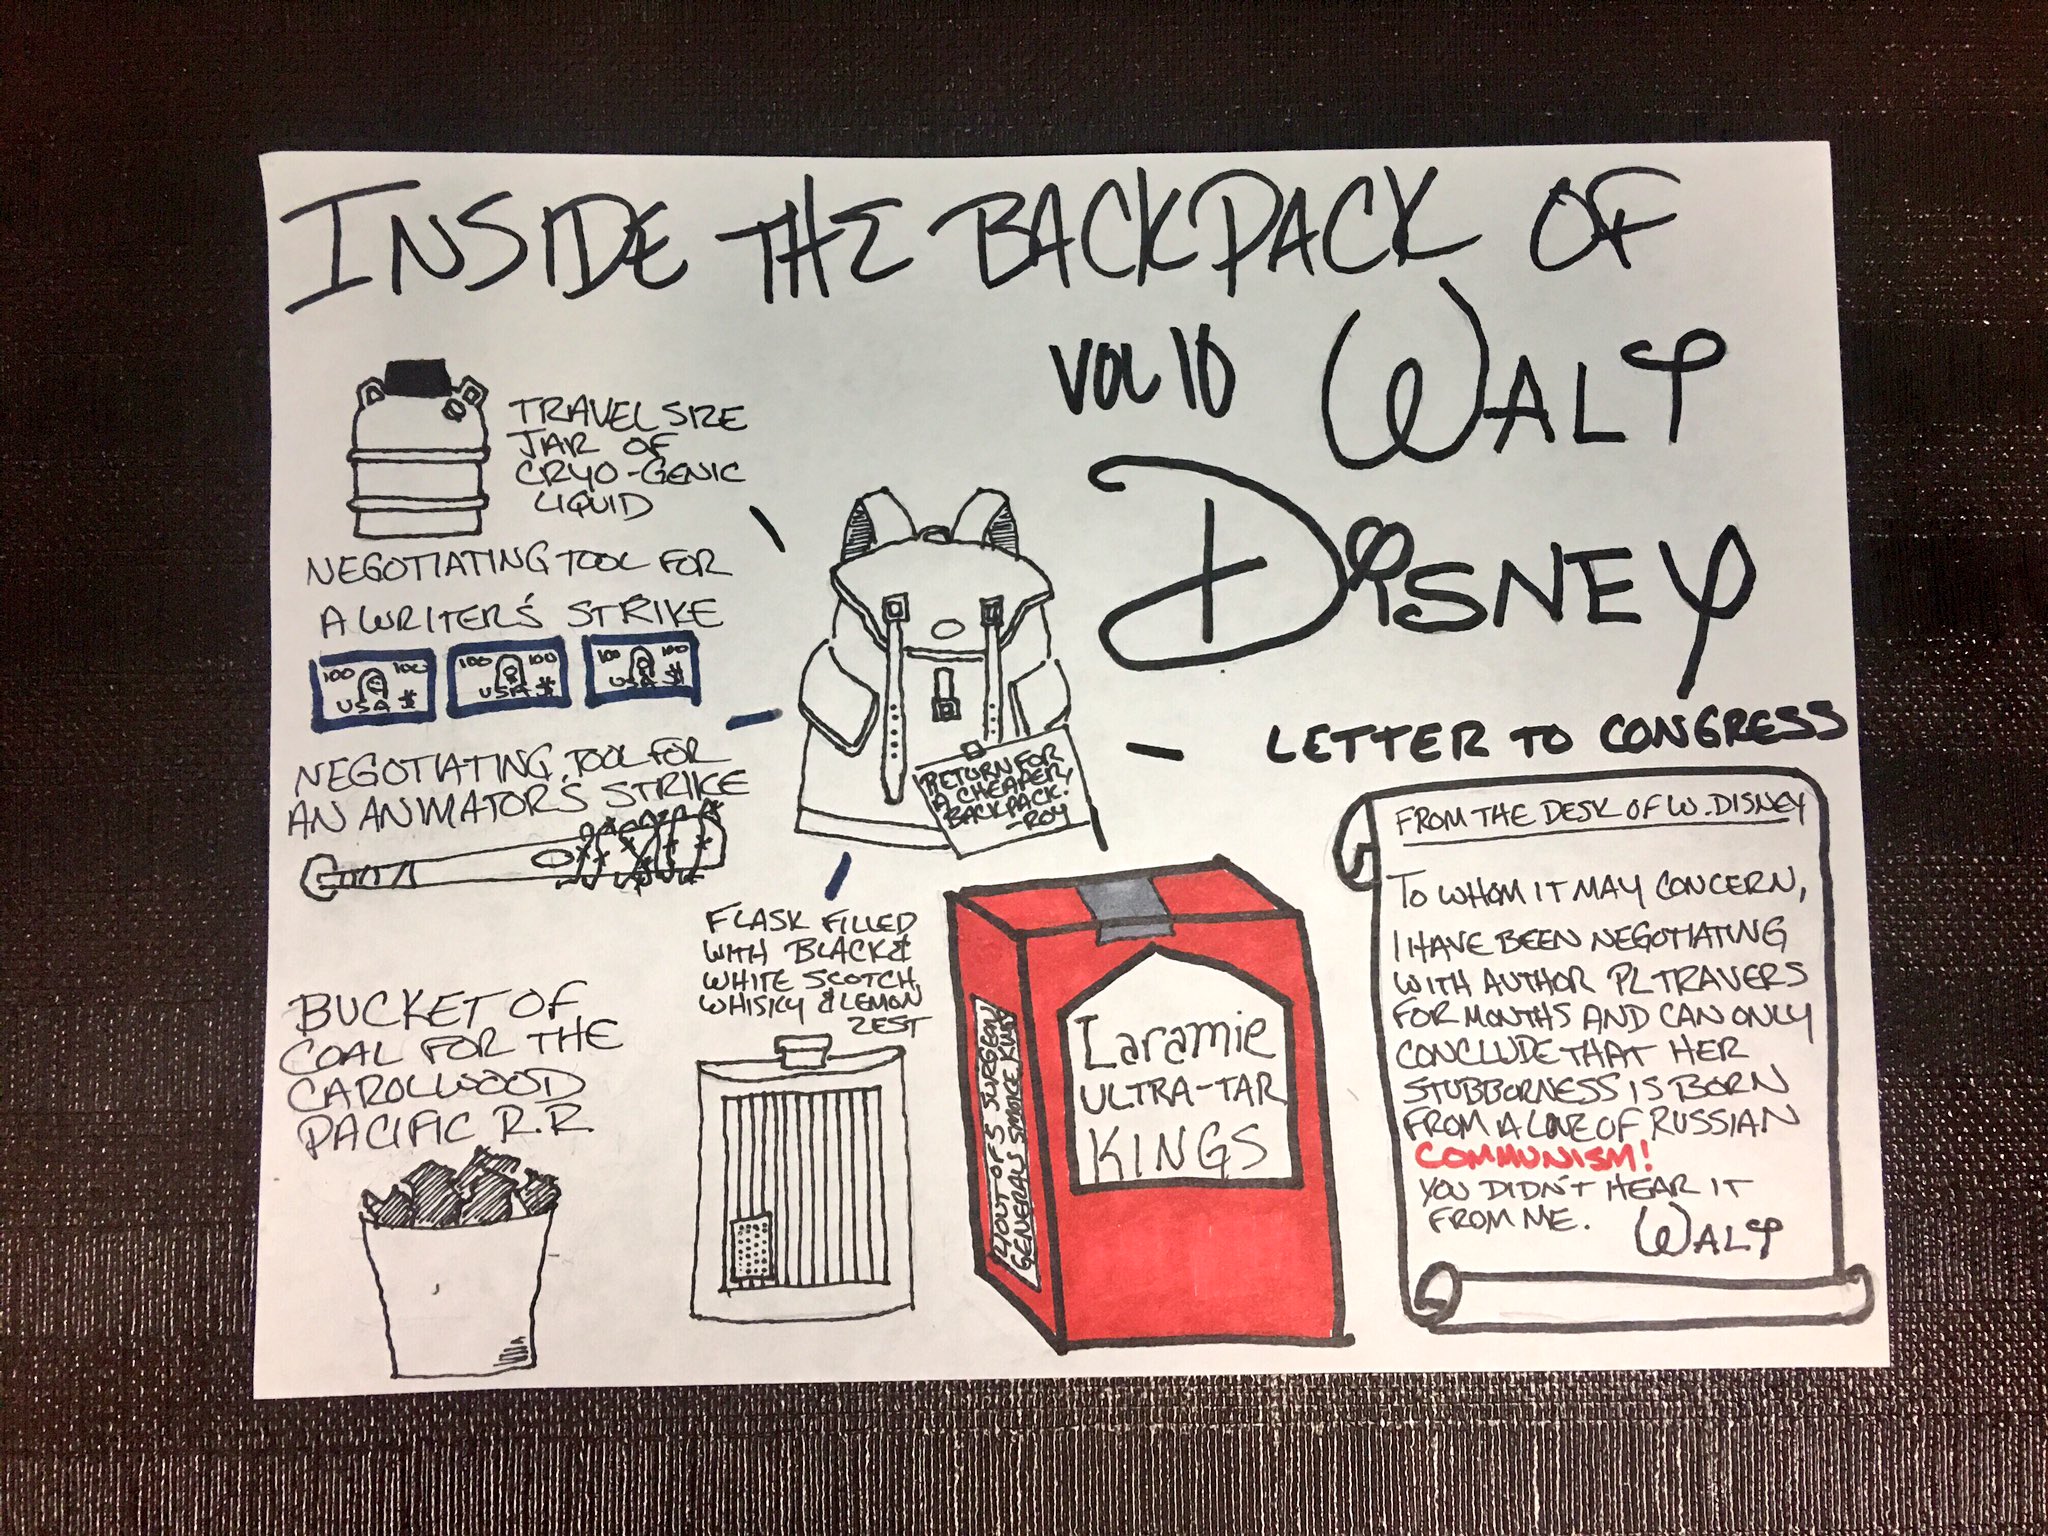 INSIDE THE BACKPACK OF
VOL 10 WALT
DISNEY
TRAVEL SIZE
JAR OF
CRYO-GENIC
LIQUID
NEGOTIATING TOOL FOR
A WRITER'S STRIKE
100 100
USA $
100 100
USA $
100 100
USA $
NEGOTIATING TOOL FOR
AN ANIMATOR'S STRIKE
RETURN FOR
A CHEAPER
BACKPACK.
-ROY
BUCKET OF
COAL FOR THE
CAROLWOOD
PACIFIC R.R.
FLASK FILLED
WITH BLACK &
WHITE SCOTCH,
WHISKY & LEMON
ZEST
4 OUT OF 5 SURGEON
GENERALS SMOKE KINGS
Laramie
ULTRA-TAR
KINGS
LETTER TO CONGRESS
FROM THE DESK OF W. DISNEY
TO WHOM IT MAY CONCERN,
I HAVE BEEN NEGOTIATING
WITH AUTHOR PL TRAVERS
FOR MONTHS AND CAN ONLY
CONCLUDE THAT HER
STUBBORNESS IS BORN
FROM A LOVE OF RUSSIAN
COMMUNISM!
YOU DIDN'T HEAR IT
FROM ME.
WALT